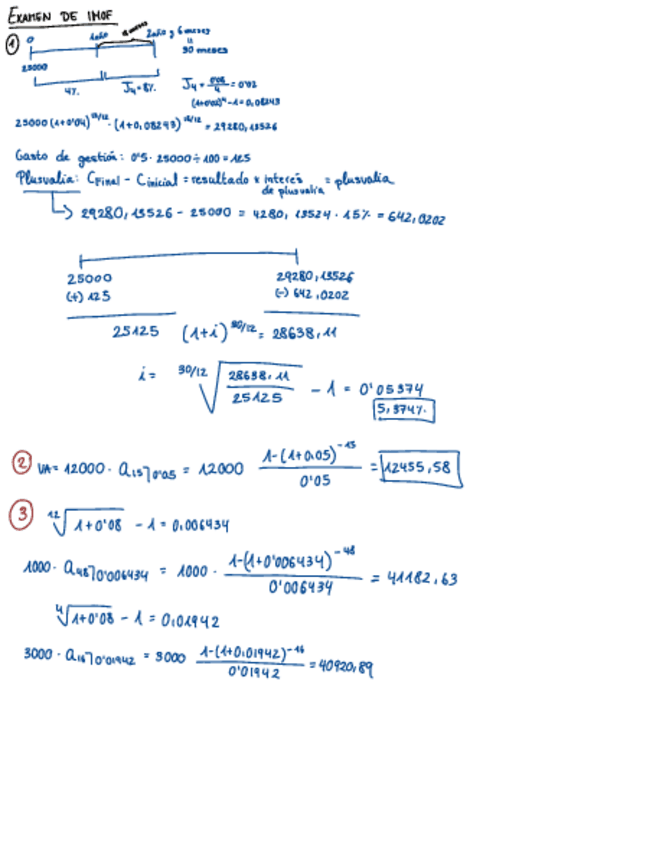 EXAMEN DE IMOF
① 0 1año 18 meses 2año y 6 meses
25000 = 30 meses
4% J₄=8% J₄ = 0'08/4 = 0'02
(1+0'02)⁴-1=0,08243
25000 (1+0'04)^12/12 · (1+0,08243)^18/12 = 29280,13526
Gasto de gestión: 0'5 · 25000 ÷ 100 = 125
Plusvalia: CFinal - Cinicial = resultado * interés de plusvalia = plusvalia
↳ 29280,13526 - 25000 = 4280,13524 · 15% = 642,0202
25000 29280,13526
(+) 125 (-) 642,0202
25125 (1+i)^30/12 = 28638,11
i = 30/12√(28638,11/25125) - 1 = 0'05374
5,374%
② VA= 12000 · a15⌉0'05 = 12000 (1-(1+0,05)^-15)/0'05 = 12455,58
③ 12√(1+0'08) - 1 = 0,006434
1000 · a48⌉0'006434 = 1000 · (1-(1+0'006434)^-48)/0'006434 = 41182,63
4√(1+0'08) - 1 = 0,01942
3000 · a16⌉0'01942 = 3000 (1-(1+0,01942)^-16)/0'01942 = 40920,89